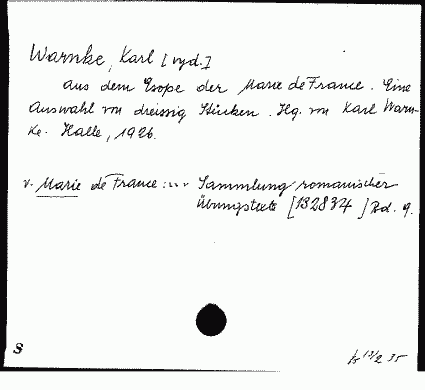 Warnke, Karl [vyd.]
Aus dem Esope der Marie de France. Eine
Auswahl von dreissig Stücken. Hg. von Karl Warn-
ke. Halle, 1926.
v. Marie de France: ... Sammlung romanischer
Übungstexte [132834] Bd. 9.
S
35